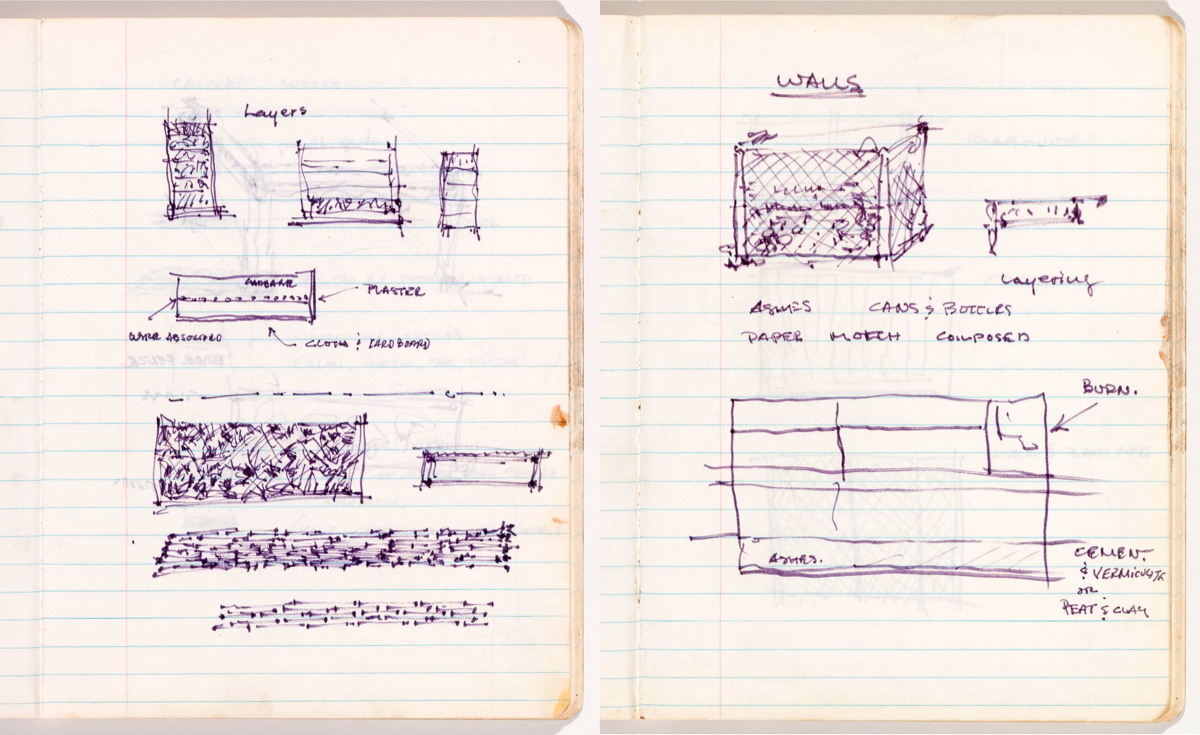 Layers
GARBAGE
PLASTER
WATER ABSORBED
CLOTH & CARDBOARD
WALLS
Layering
ASHES CANS & BOTTLES
PAPER COMPOSED
BURN.
ASHES.
CEMENT
& VERMICULITE
OR
PEAT & CLAY